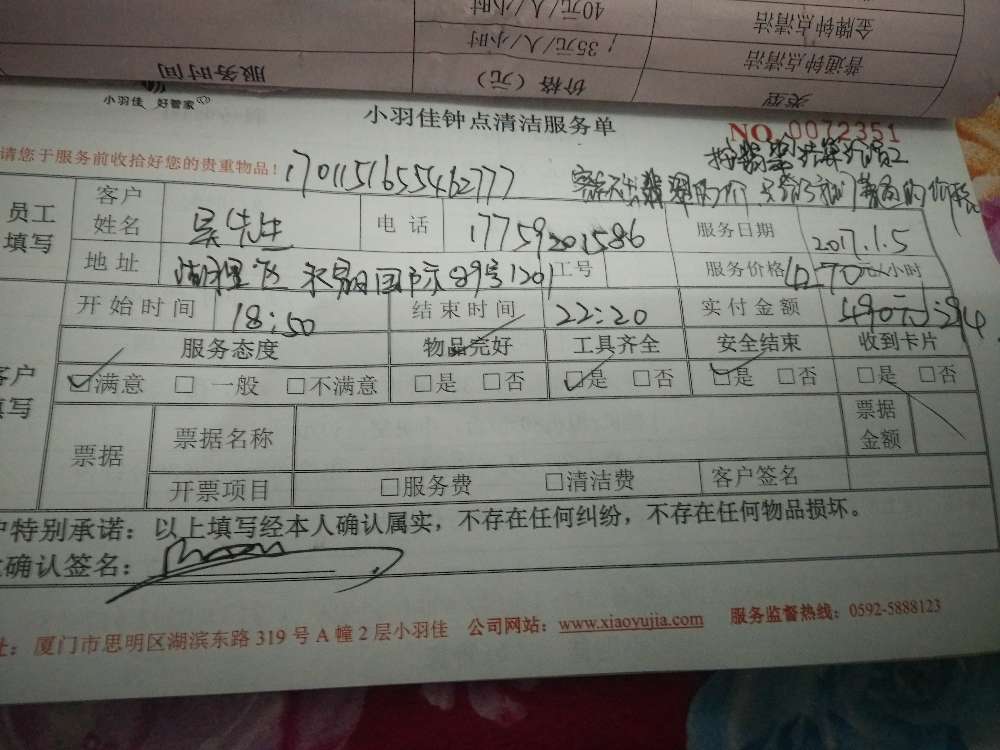 40元/人/小时 金牌钟点清洁
35元/人/小时 普通钟点清洁
服务时间 价格（元） 类型
小羽佳 好管家
小羽佳钟点清洁服务单
NO 0072351
请您于服务前收拾好您的贵重物品！ 1701151655462777
员工填写 客户姓名 吴先生 电话 17759201586 服务日期 2017.1.5
地址 湖里区 国际89号1201 工号 服务价格 70元/人/小时
开始时间 18:50 结束时间 22:20 实付金额 490元
服务态度 物品完好 工具齐全 安全结束 收到卡片
客户填写 ☑满意 □ 一般 □不满意 □是 □否 ☑是 □否 ☑是 □否 □是 □否
票据 票据名称 票据金额
开票项目 □服务费 □清洁费 客户签名
户特别承诺：以上填写经本人确认属实，不存在任何纠纷，不存在任何物品损坏。
确认签名：
址：厦门市思明区湖滨东路 319 号 A 幢 2 层小羽佳 公司网站：www.xiaoyujia.com 服务监督热线：0592-5888123